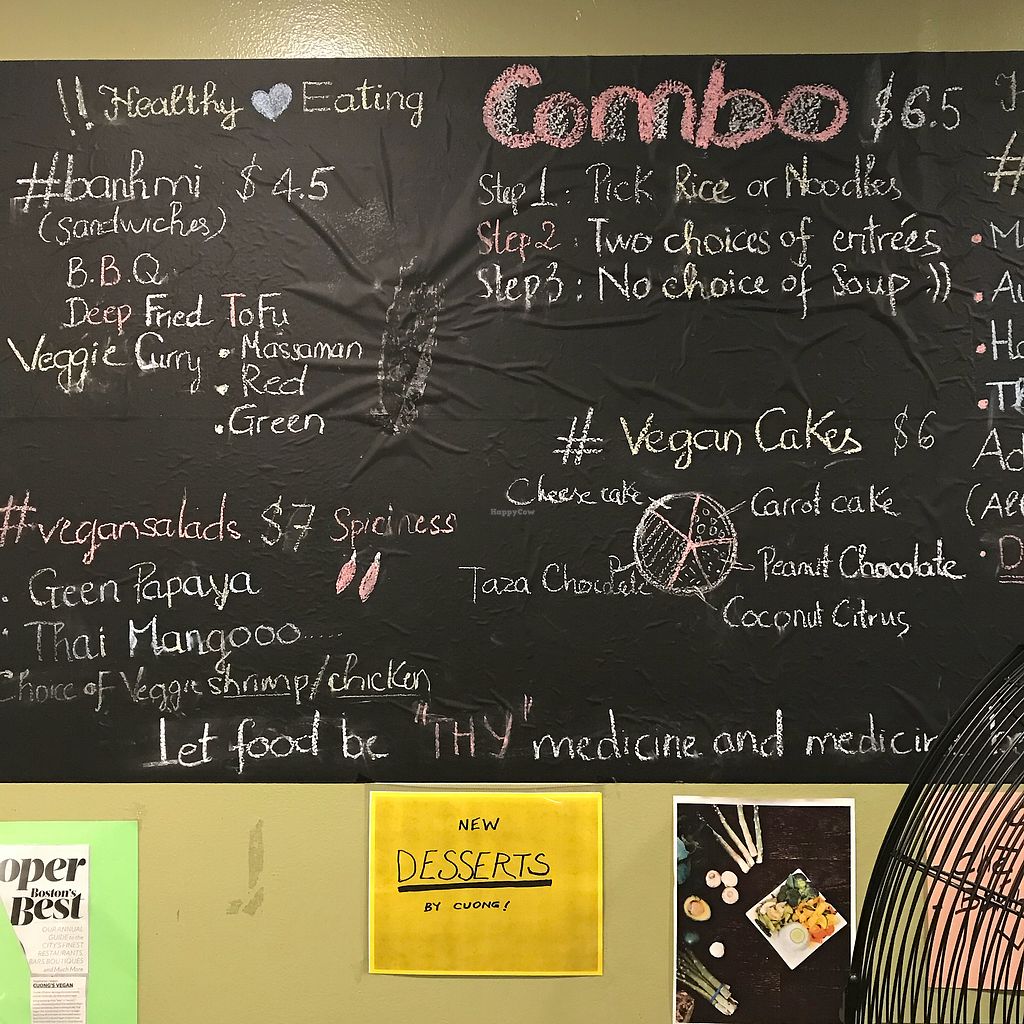 !! Healthy Eating
#banhmi $4.5
(sandwiches)
B.B.Q
Deep Fried ToFu
Veggie Curry • Massaman
• Red
• Green
#vegansalads $7 Spiciness
• Geen Papaya
• Thai Mangooo.....
Choice of Veggie shrimp/chicken
Combo $6.5
Step 1: Pick Rice or Noodles
Step 2: Two choices of entrées
Step 3: No choice of Soup :))
# Vegan Cakes $6
Cheese cake
Carrot cake
Taza
Peanut Chocolate
Coconut Citrus
#
Let food be "THY" medicine and medicin
HappyCow
NEW
DESSERTS
BY CUONG!
oper
Boston's
Best
OUR ANNUAL
GUIDE to the
CITY'S FINEST
RESTAURANTS,
BARS BOUTIQUES
and Much More
CUONG'S VEGAN